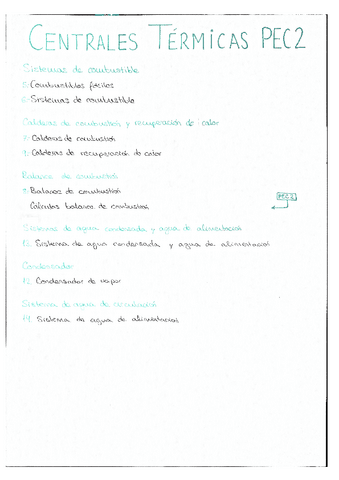 CENTRALES TÉRMICAS PEC2
Sistemas de combustible
5. Combustibles fósiles
6. Sistemas de combustible
Calderas de combustion y recuperación de calor
7. Calderas de combustion
Calderas de recuperación de calor
Balance de combustion
Balance de combustion
PEC2
Cálculos balance de combustion
Sistema de agua condensada y agua de alimentacion
Sistema de agua condensada y agua de alimentacion
Condensador
12. Condensador de vapor
Sistema de agua de circulacion
Sistema de agua de alimentacion